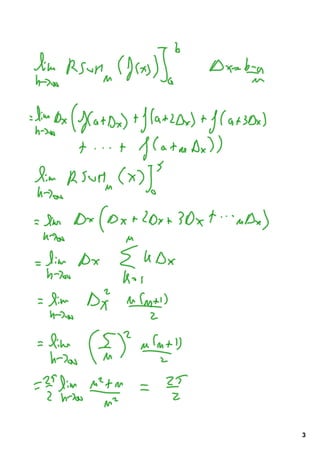 lim n→∞ RSum n (f(x))]ₐᵇ Δx = b-a/n
= lim n→∞ Δx (f(a+Δx) + f(a+2Δx) + f(a+3Δx)
+ ··· + f(a+nΔx))
lim n→∞ RSum n (x)]₀⁵
= lim n→∞ Δx (Δx + 2Δx + 3Δx + ··· nΔx)
= lim n→∞ Δx Σ k=1 n kΔx
= lim n→∞ Δx² n(n+1)/2
= lim n→∞ (5/n)² n(n+1)/2
= 25/2 lim n→∞ n²+n/n² = 25/2
3